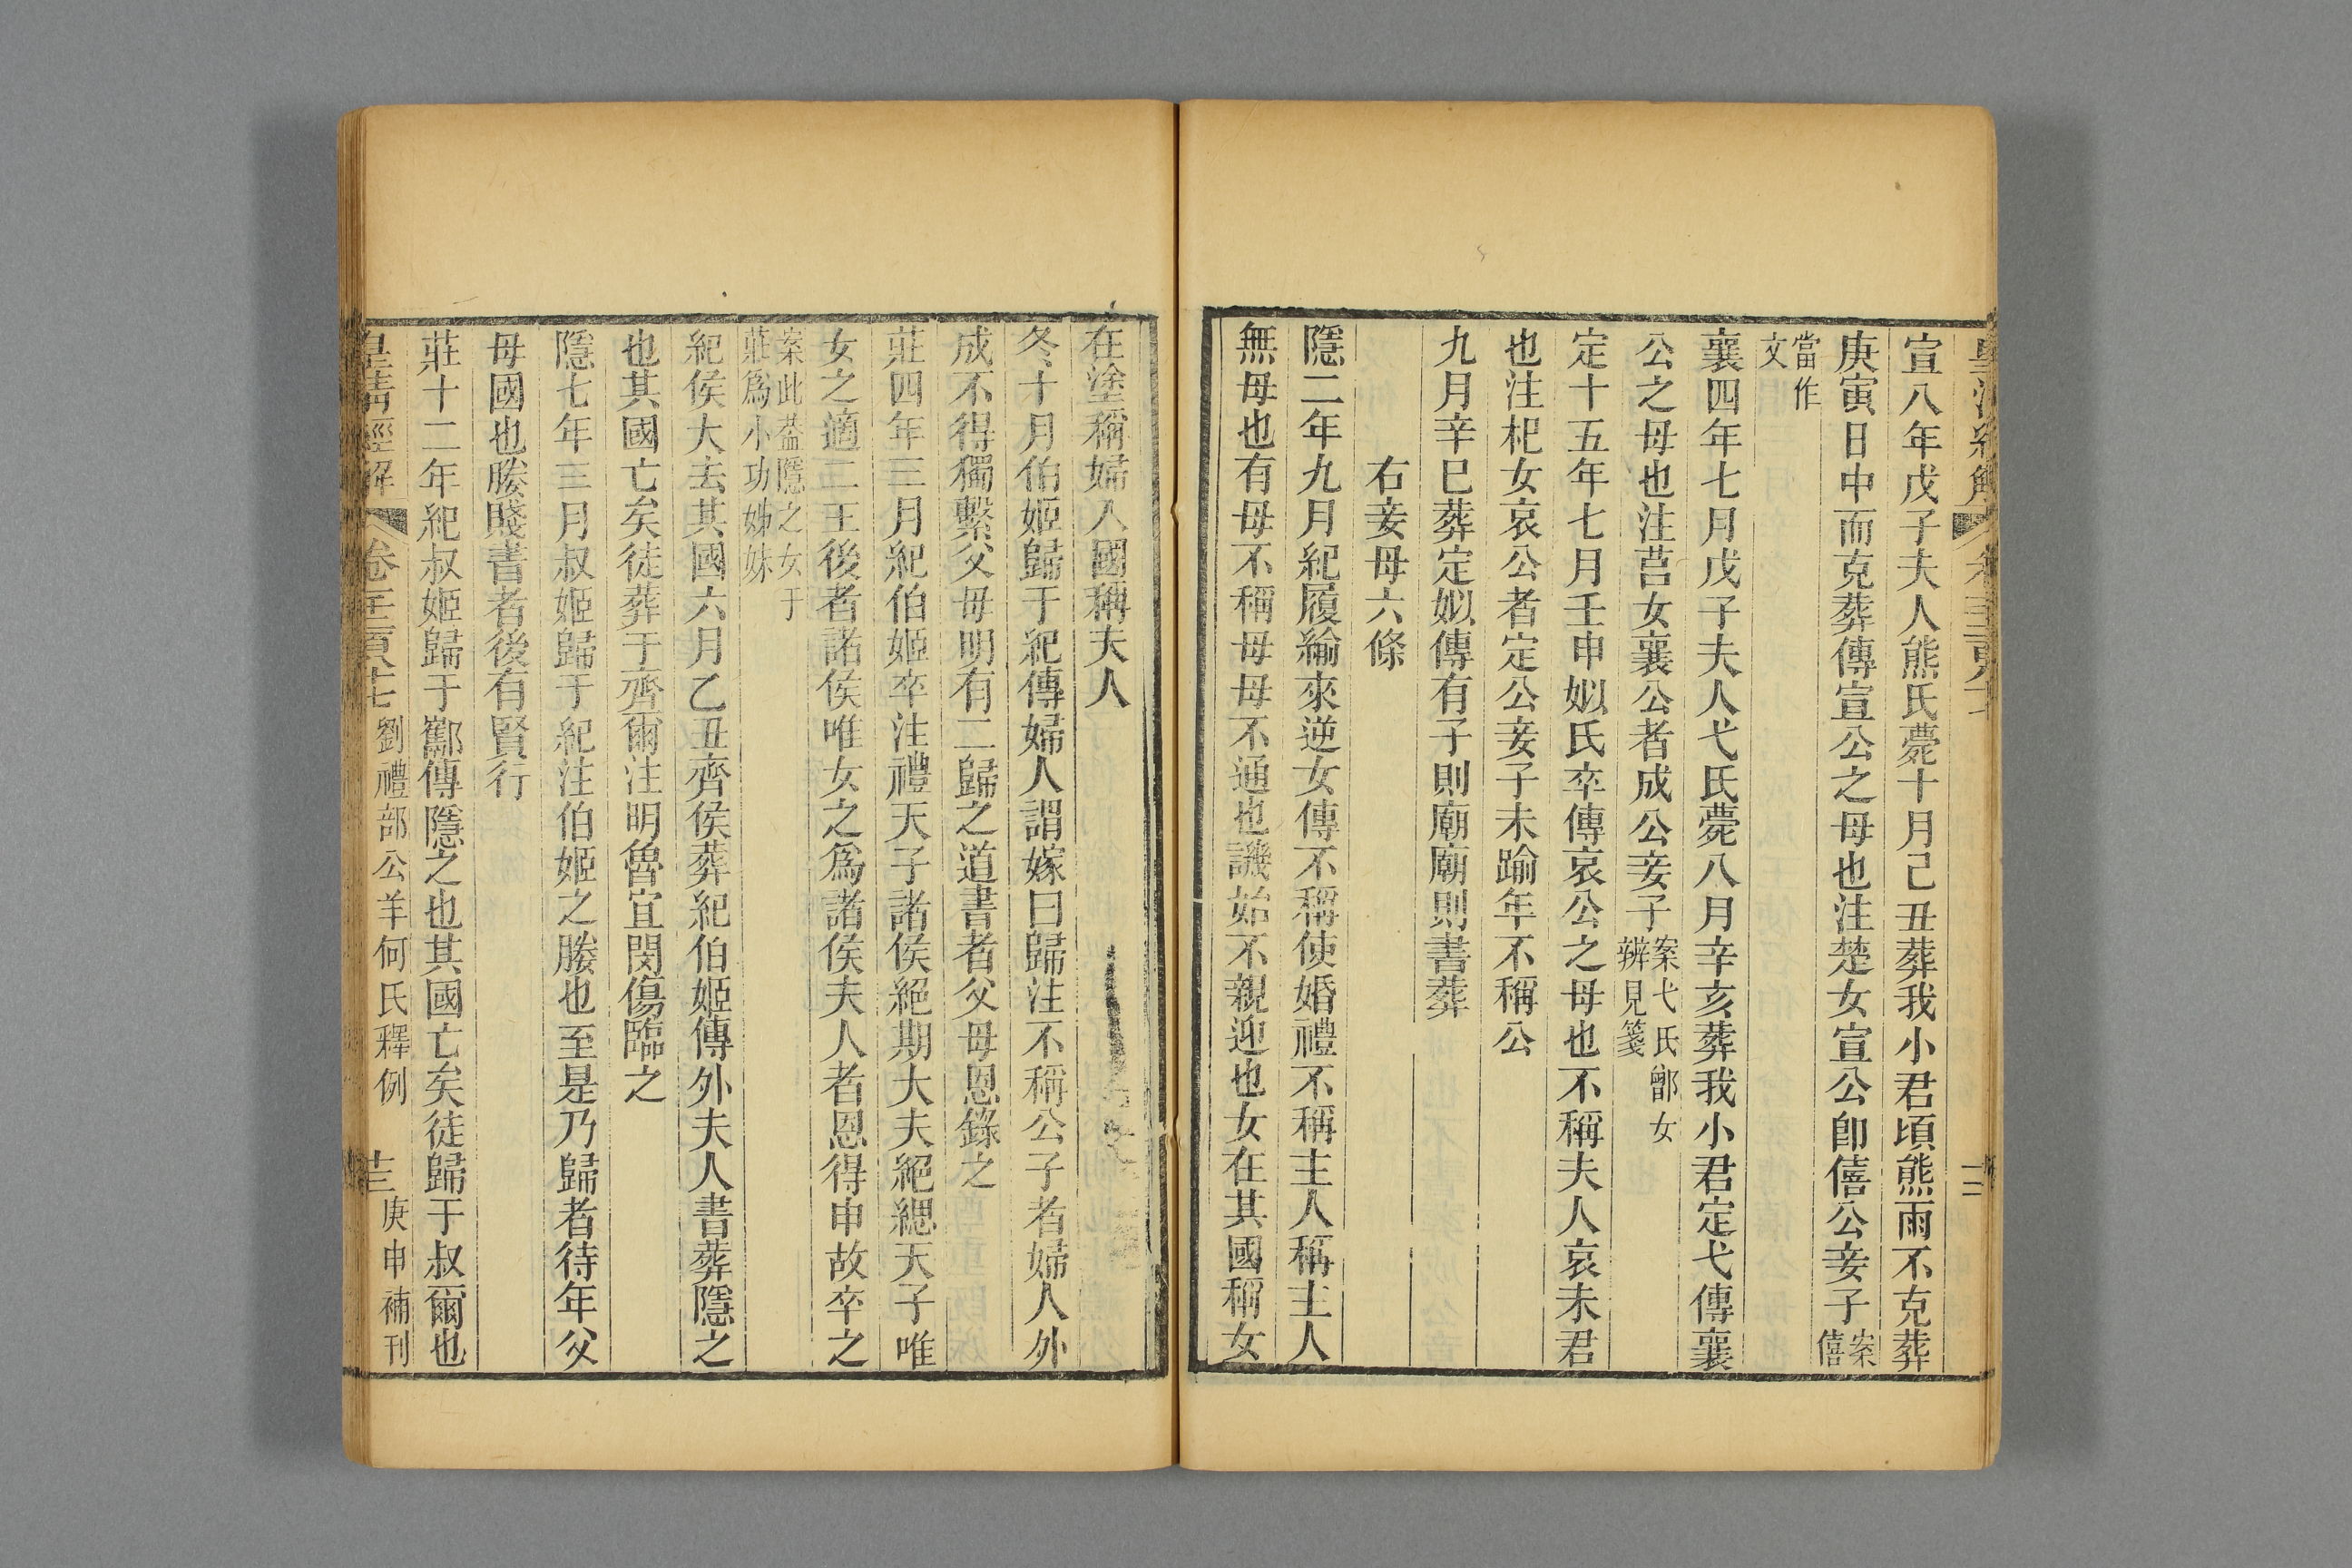 宣八年戊子夫人熊氏薨十月己丑葬我小君頃熊雨不克葬
庚寅日中而克葬傳宣公之母也注楚女宣公卽僖公妾子案僖
當作文
襄四年七月戊子夫人弋氏薨八月辛亥葬我小君定弋傳襄
公之母也注莒女襄公者成公妾子案弋氏鄫女辨見箋
定十五年七月壬申姒氏卒傳哀公之母也不稱夫人哀未君
也注杞女哀公者定公妾子未踰年不稱公
九月辛巳葬定姒傳有子則廟廟則書葬
右妾母六條
隱二年九月紀履緰來逆女傳不稱使婚禮不稱主人稱主人
無母也有母不稱母母不通也譏始不親迎也女在其國稱女
在塗稱婦入國稱夫人
冬十月伯姬歸于紀傳婦人謂嫁曰歸注不稱公子者婦人外
成不得獨繫父母明有二歸之道書者父母恩錄之
莊四年三月紀伯姬卒注禮天子諸侯絕期大夫絕緦天子唯
女之適二王後者諸侯唯女之爲諸侯夫人者恩得申故卒之
案此葢隱之女于莊爲小功姊妹
紀侯大去其國六月乙丑齊侯葬紀伯姬傳外夫人書葬隱之
也其國亡矣徒葬于齊爾注明魯宜閔傷臨之
隱七年三月叔姬歸于紀注伯姬之媵也至是乃歸者待年父
母國也媵賤書者後有賢行
莊十二年紀叔姬歸于酅傳隱之也其國亡矣徒歸于叔爾也
皇清經解 卷 劉禮部公羊何氏釋例 庚申補刊